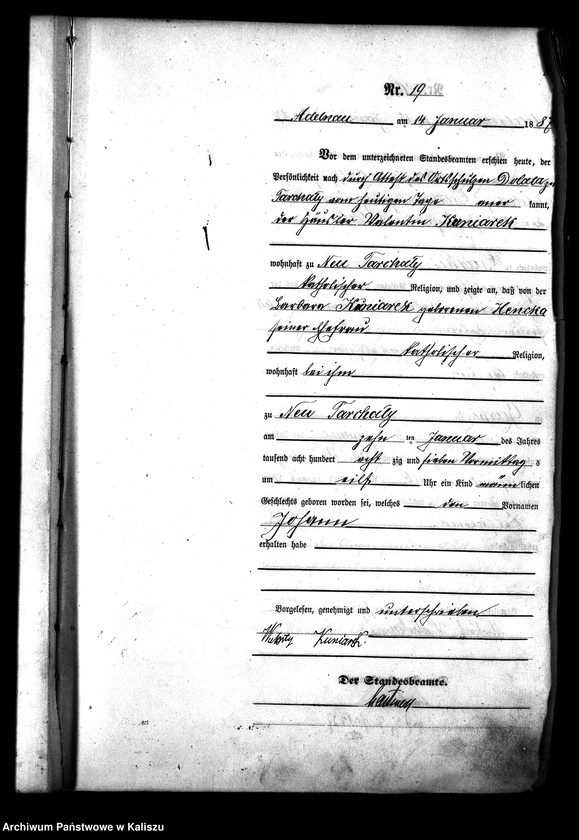 Nr. 19.
Adelnau am 14 Januar 1887
Vor dem unterzeichneten Standesbeamten erschien heute, der
Persönlichkeit nach durch Attest des Ortsschulzen Dolata zu
Tarchaly vom heutigen Tage aner kannt,
der Häusler Valentin Kuniarek
wohnhaft zu Neu Tarchaly
katholischer Religion, und zeigte an, daß von der
Barbara Kuniarek geborenen Hencka
seiner Ehefrau
katholischer Religion,
wohnhaft bei ihm
zu Neu Tarchaly
am zehn ten Januar des Jahres
tausend acht hundert acht zig und sieben Vormittag s
um eilf Uhr ein Kind männlichen
Geschlechts geboren worden sei, welches den Vornamen
Johann
erhalten habe
Vorgelesen, genehmigt und unterschrieben
Kuniarek.
Der Standesbeamte.
Archiwum Państwowe w Kaliszu